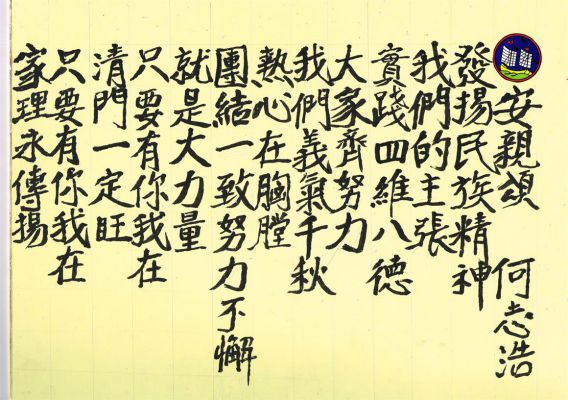 安親頌 何志浩
發揚民族精神
我們的主張
實踐四維八德
大家齊努力
我們義氣千秋
熱心在胸膛
團結一致努力不懈
就是大力量
只要有你我在
清門一定旺
只要有你我在
家理永傳揚